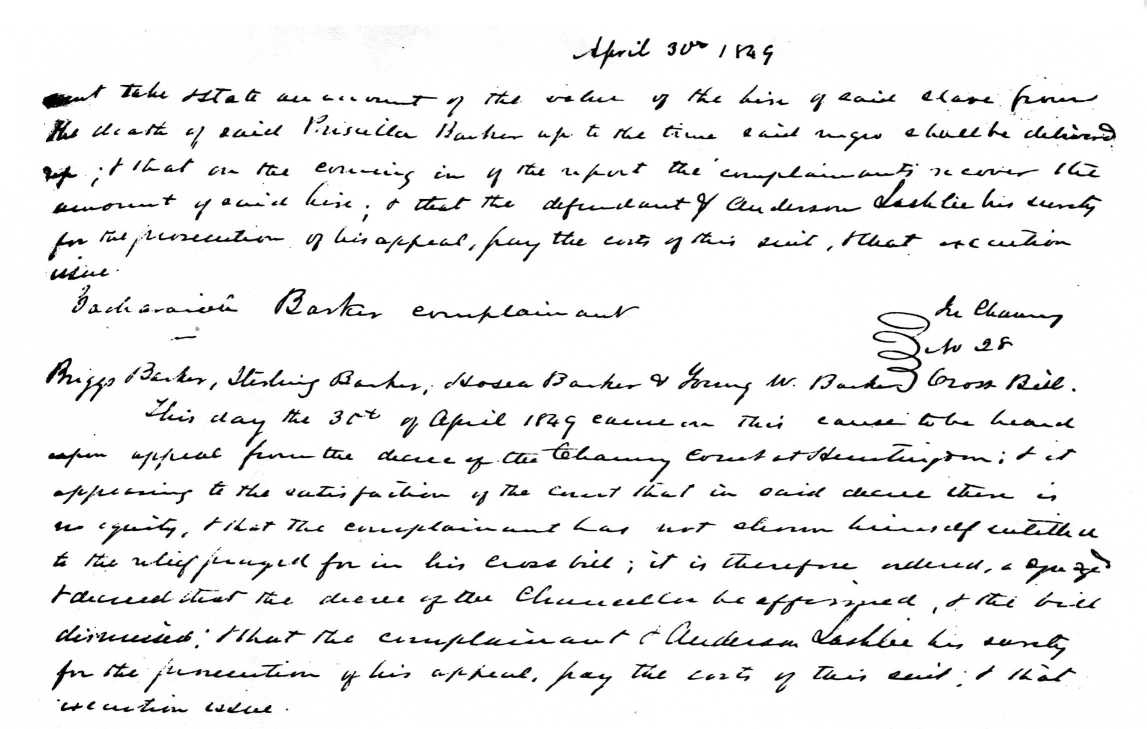 April 30th 1849
take & state an account of the value of the hire of said slave from
the death of said Priscilla Barker up to the time said negro shall be delivered
up; & that on the coming in of the report the complainants recover the
amount of said hire; & that the defendant & Anderson Lashlie his surety
for the prosecution of his appeal, pay the costs of this suit, & that execution
issue.
Barker complainant
In Chancery
No 28
Briggs Barker, Sterling Barker, Hosea Barker & Young W. Barker
Cross Bill.
This day the 30th of April 1849 came on this cause to be heard
upon appeal from the decree of the Chancery Court at Huntingdon; & it
appearing to the satisfaction of the court that in said decree there is
no equity, & that the complainant has not shown himself entitled
to the relief prayed for in his cross bill; it is therefore ordered,
& decreed that the decree of the Chancellor be affirmed, & the bill
dismissed; & that the complainant & Anderson Lashlie his surety
for the prosecution of his appeal, pay the costs of this suit; & that
execution issue.